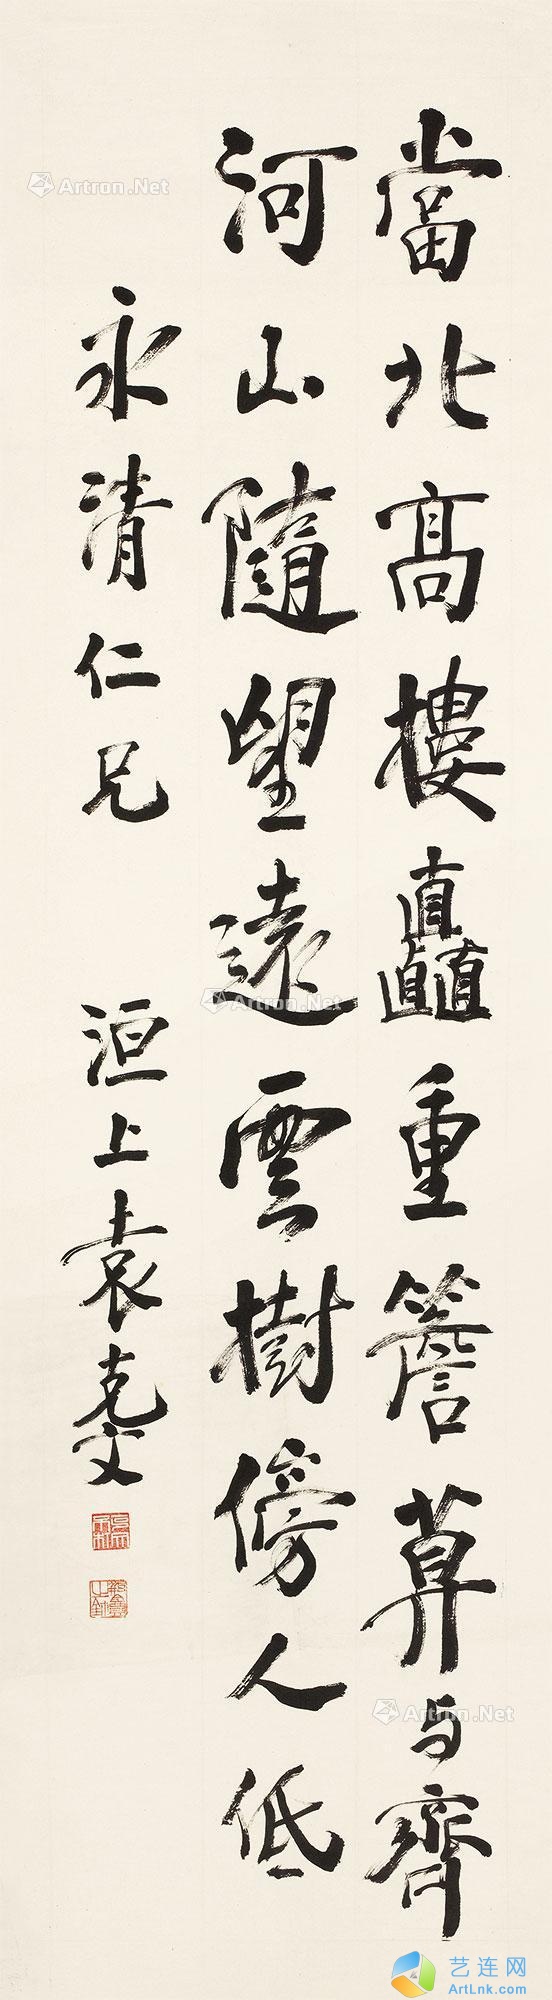 當北高樓矗重簷草与齊
河山隨望遠雲樹傍人低
永清仁兄 洹上袁克文
Artron.Net
Artron.Net
Artron.Net
艺连网
ArtLnk.com